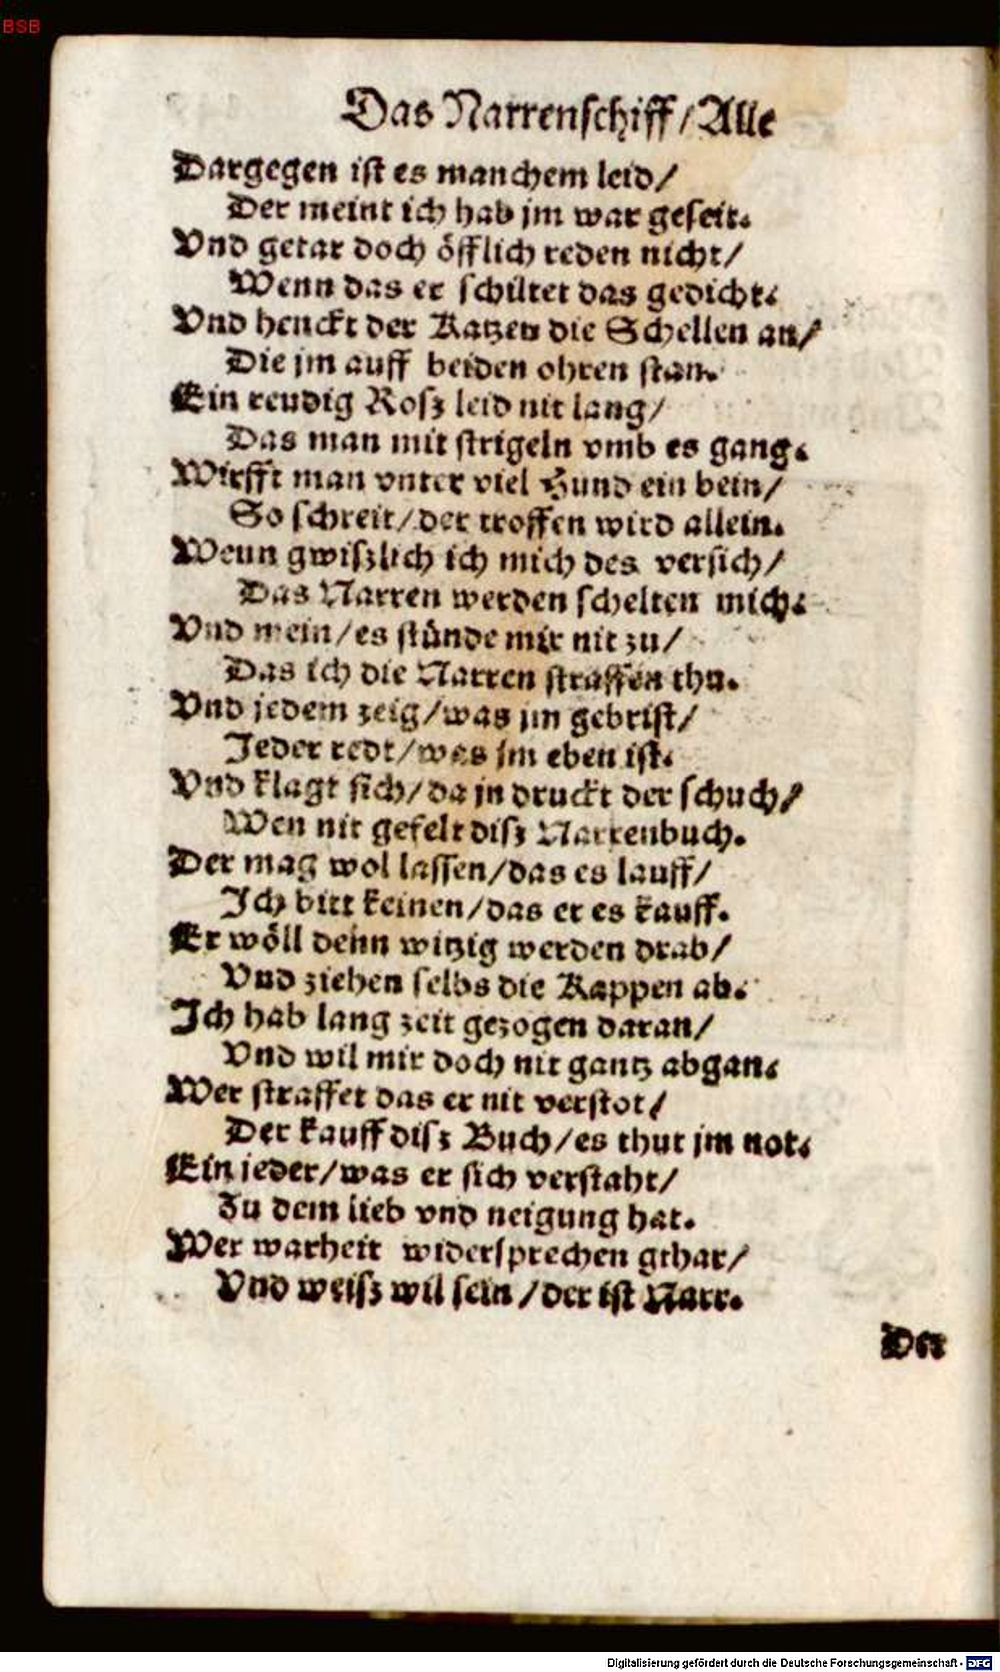 BSB
Das Narrenschiff / Alle
Dargegen ist es manchem leid /
Der meint ich hab jm war geseit.
Vnd getar doch öfflich reden nicht /
Wenn das er schiltet das gedicht.
Vnd henckt der Katzen die Schellen an /
Die jm auff beiden ohren stan.
Ein reudig Rosz leid nit lang /
Das man mit strigeln vmb es gang.
Wirfft man vnter viel Hund ein bein /
So schreit / der troffen wird allein.
Wenn gwiszlich ich mich des versich /
Das Narren werden schelten mich.
Vnd mein / es stünde mir nit zu /
Das ich die Narren straffen thu.
Vnd jedem zeig / was jm gebrist /
Jeder redt / was jm eben ist.
Vnd klagt sich / da jn druckt der schuch /
Wen nit gefelt disz Narrenbuch.
Der mag wol lassen / das es lauff /
Ich bitt keinen / das er es kauff.
Er wöll denn witzig werden drab /
Vnd ziehen selbs die Kappen ab.
Ich hab lang zeit gezogen daran /
Vnd wil mir doch nit gantz abgan.
Wer straffet das er nit verstot /
Der kauff disz Buch / es thut jm not.
Ein jeder / was er sich verstaht /
Zu dem lieb vnd neigung hat.
Wer warheit widersprechen gthar /
Vnd weisz wil sein / der ist Narr.
Der
Digitalisierung gefördert durch die Deutsche Forschungsgemeinschaft - DFG